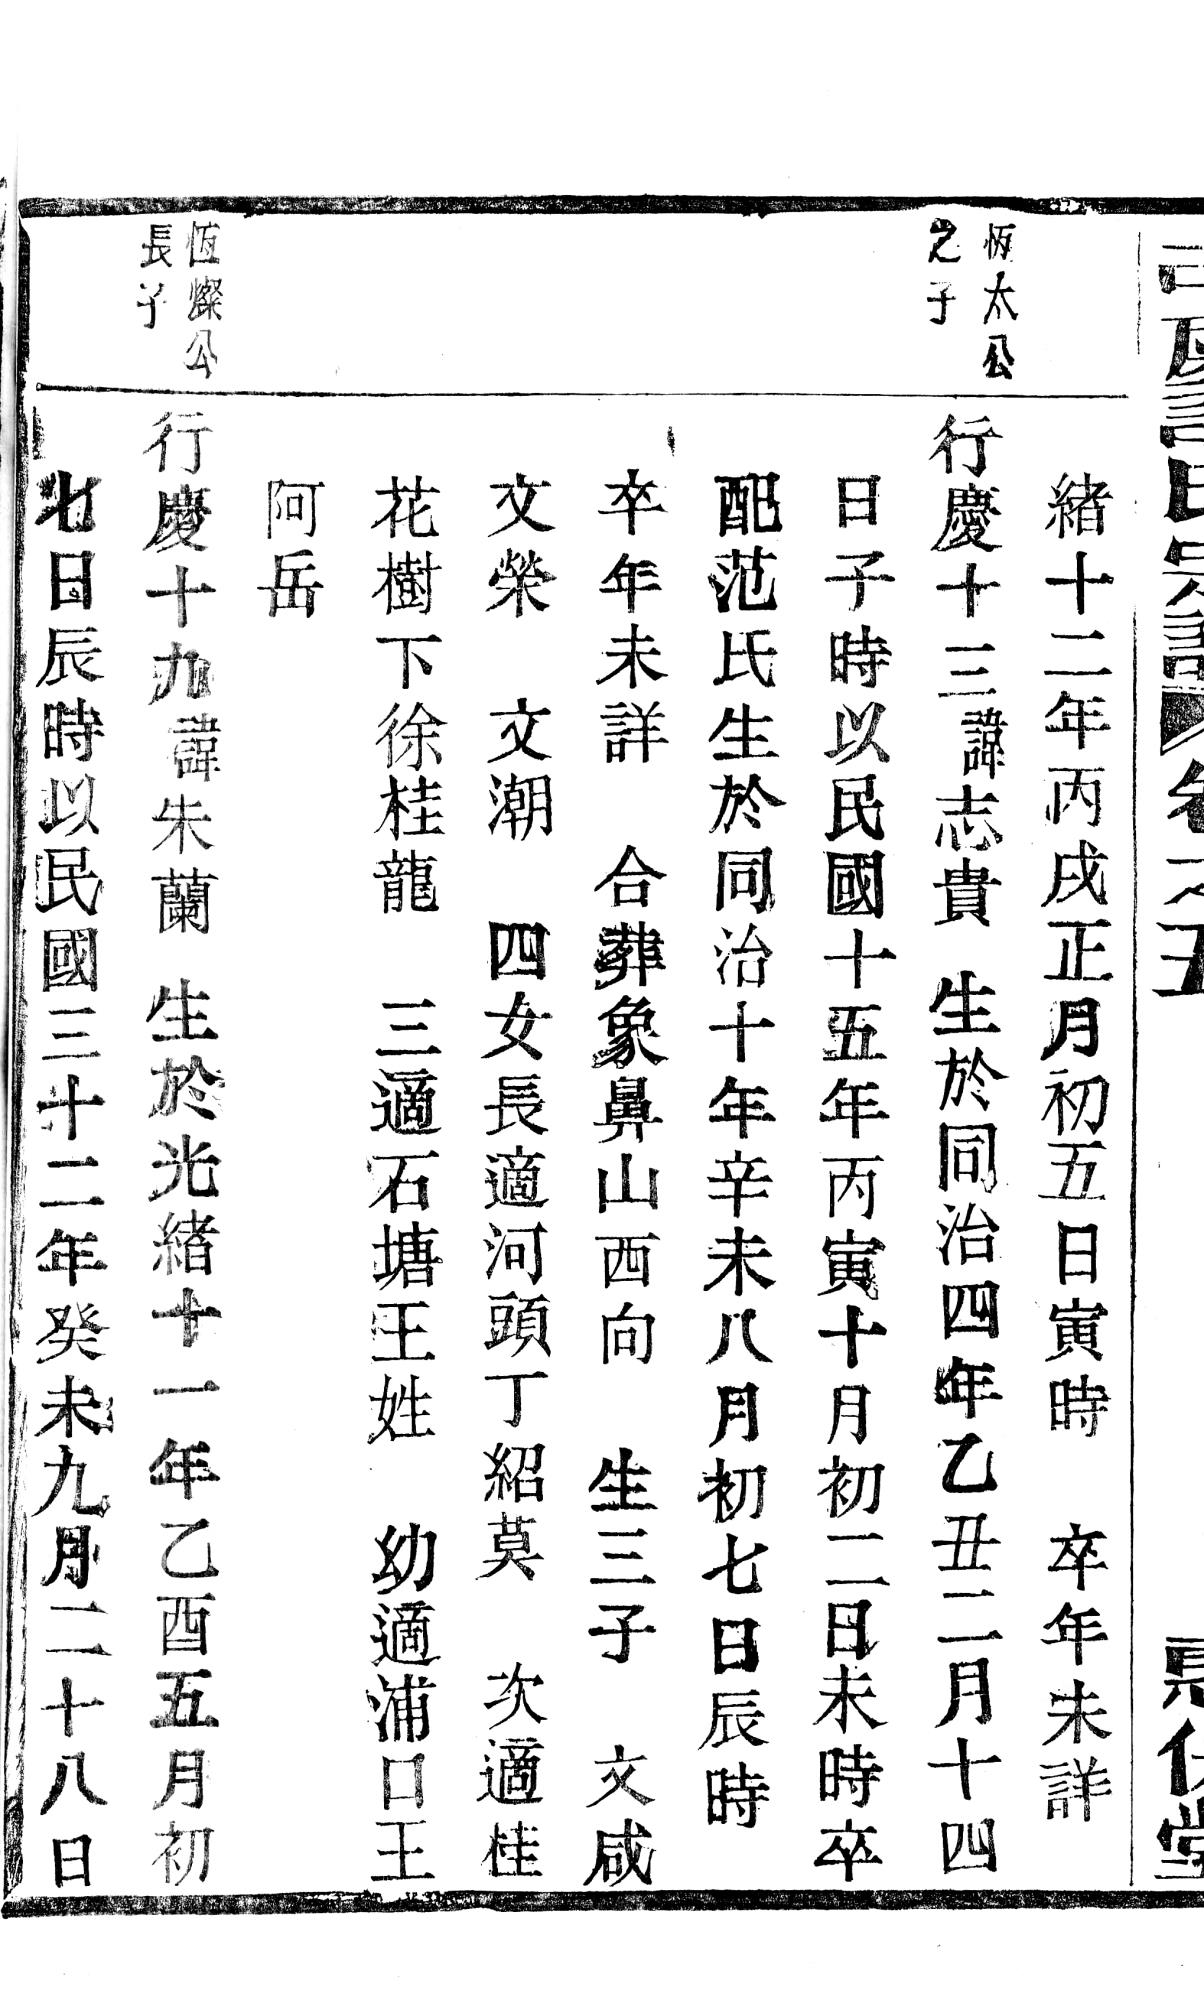 氏宗譜 卷之五
緒十二年丙戌正月初五日寅時 卒年未詳
恆太公
之子
行慶十三諱志貴 生於同治四年乙丑二月十四
日子時以民國十五年丙寅十月初二日未時卒
配范氏生於同治十年辛未八月初七日辰時
卒年未詳 合葬象鼻山西向 生三子 文咸
文榮 文潮 四女長適河頭丁紹莫 次適桂
花樹下徐桂龍 三適石塘王姓 幼適浦口王
阿岳
恆燦公
長子
行慶十九諱朱蘭 生於光緒十一年乙酉五月初
七日辰時以民國三十二年癸未九月二十八日